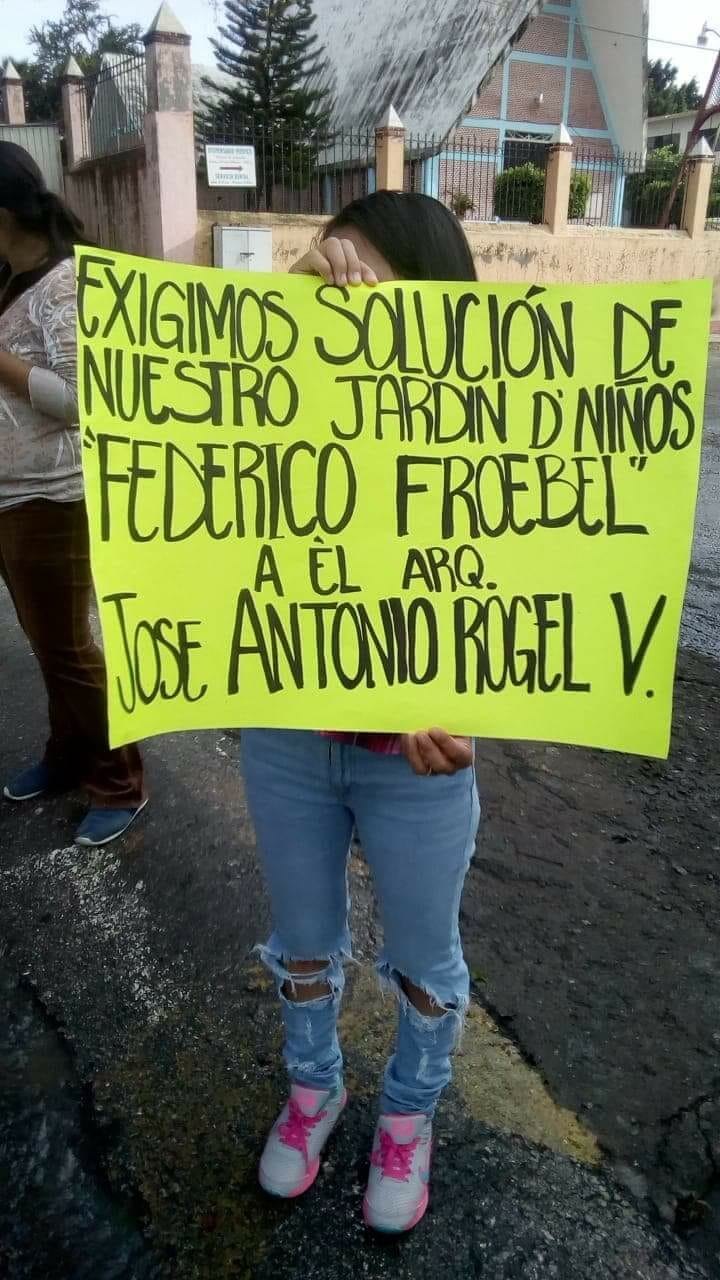 EXIGIMOS SOLUCIÓN DE
NUESTRO JARDIN D' NIÑOS
"FEDERICO FROEBEL"
A ÈL ARQ.
JOSE ANTONIO ROGEL V.